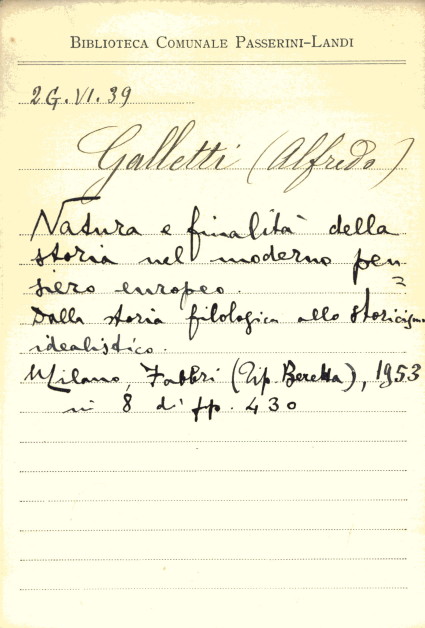 BIBLIOTECA COMUNALE PASSERINI-LANDI
2G.VI.39
Galletti (Alfredo)
Natura e finalità della
storia nel moderno pen=
siero europeo.
Dalla storia filologica allo storicismo
idealistico.
Milano, Fabbri (Tip. Beretta), 1953
in 8 di pp. 430